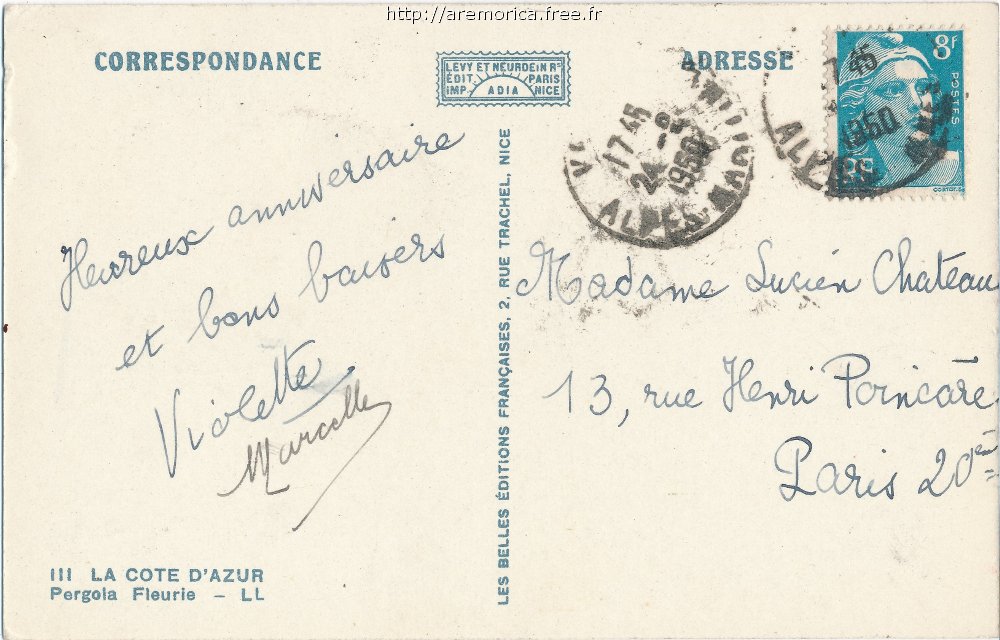 http://aremorica.free.fr
CORRESPONDANCE
LEVY ET NEURDEIN Rs
ÉDIT PARIS
IMP. ADIA NICE
ADRESSE
8F
POSTES
RF
17 45
24
1950
ALPES-MAR
7 45
1950
ALPES
Heureux anniversaire
et bons baisers
Violette
Marcelle
LES BELLES ÉDITIONS FRANÇAISES, 2, RUE TRACHEL, NICE
Madame Lucien Chateau
13, rue Henri Poincaré
Paris 20ème
III LA COTE D'AZUR
Pergola Fleurie - LL